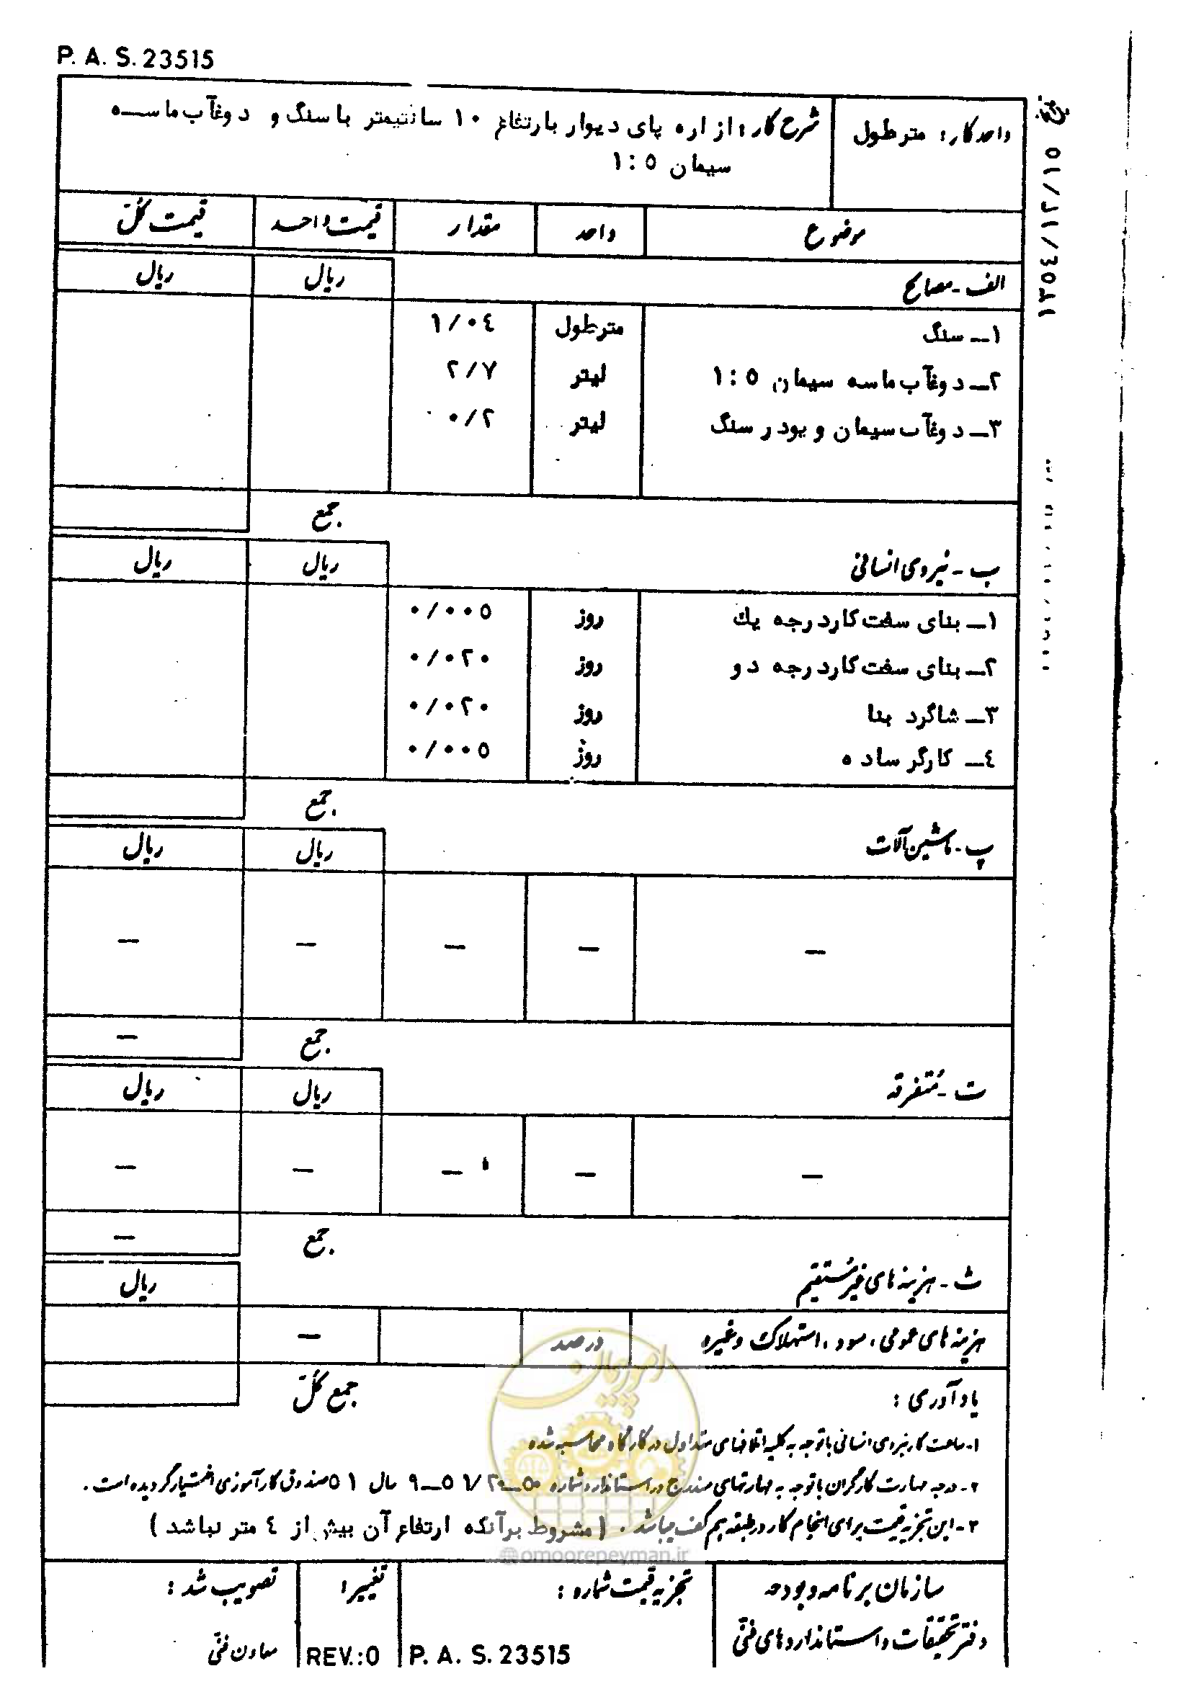 P. A. S. 23515
واحد کار: متر طول
شرح کار: ازاره پای دیوار بارتفاع ۱۰ سانتیمتر با سنگ و دوغآب ماسه
سیمان ۱:۵
تاریخ ۱۳۵٤/۱۲/۱۵
موضوع واحد مقدار قیمت واحد قیمت کل
الف - مصالح ریال ریال
۱- سنگ مترطول ۱/۰٤
۲- دوغآب ماسه سیمان ۱:۵ لیتر ۲/۷
۳- دوغآب سیمان و پودر سنگ لیتر ۰/۲
جمع
ب - نیروی انسانی ریال ریال
۱- بنای سفت کار درجه یك روز ۰/۰۰۵
۲- بنای سفت کار درجه دو روز ۰/۰۲۰
۳- شاگرد بنا روز ۰/۰۲۰
٤- کارگر ساده روز ۰/۰۰۵
جمع
پ - ماشین آلات ریال ریال
— — — — —
جمع —
ت - متفرقه ریال ریال
— — — — —
جمع —
ث - هزینه های غیرمستقیم ریال
هزینه های عمومی، سود، استهلاک وغیره درصد —
جمع کل
یادآوری:
۱- ساعت کار نیروی انسانی با توجه به کلیه اتلافهای متداول در کارگاه محاسبه شده
۲- درجه مهارت کارگران با توجه به مهارتهای مندرج در استاندارد شماره ۵۰-۲۰/۱ ۵۱-۹ سال ۵۱ صندوق کارآموزی اختیار گردیده است.
۳- این تجزیه قیمت برای انجام کار در طبقه هم کف میباشد. (مشروط برآنکه ارتفاع آن بیش از ٤ متر نباشد)
@omoorepeyman.ir
امور پیمان
سازمان برنامه و بودجه
دفتر تحقیقات و استانداردهای فنی
تجزیه قیمت شماره:
P. A. S. 23515
تغییر:
REV.:0
تصویب شد:
معاون فنی